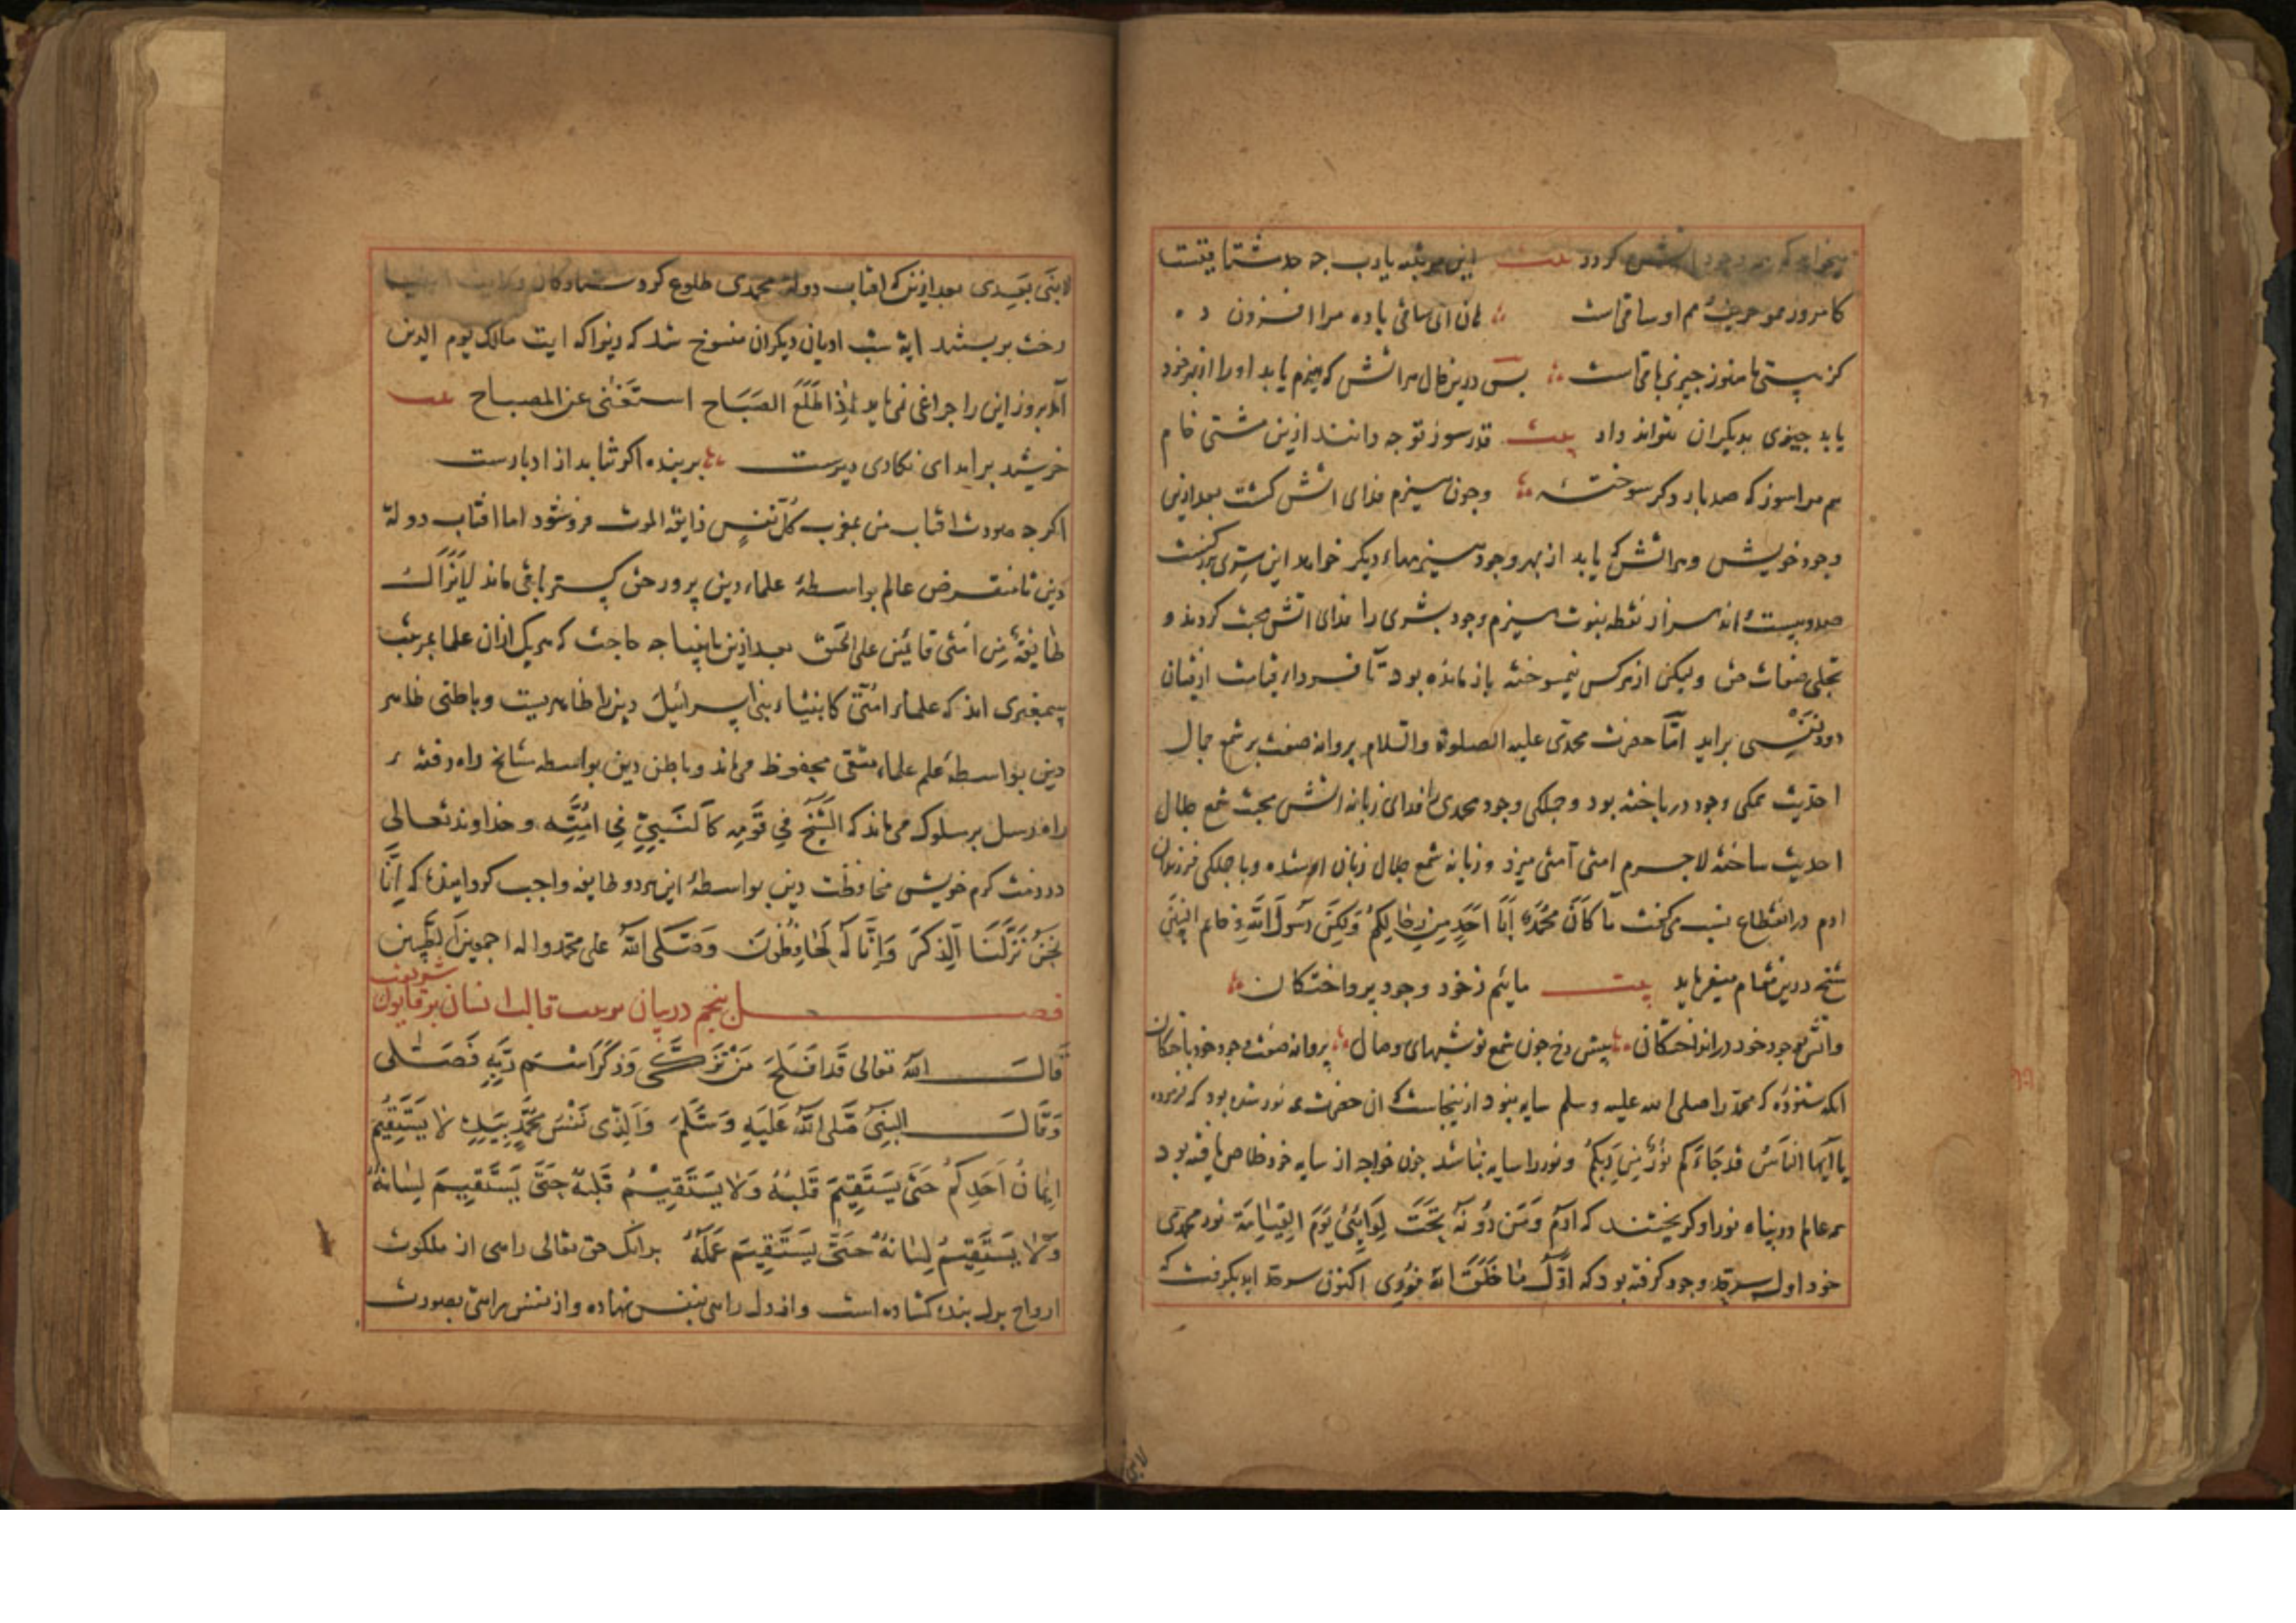 میخواهد که همه وجود اتش کردد بیت این مرتبه یارب چه حد مشتاقیست
کامروز همو حریف و هم او ساقیست هان ای ساقی باده مرا افزون ده
کز هستی ما هنوز چیزی باقیست پس درین حال هر اتش که هیزم یابد او را از بهر خود
یابد چیزی بدیکران نتواند داد بیت قدر سوز تو چه دانند ازین مشتی خام
هم مرا سوز که صد بار دکر سوخته و چون هیزم فدای اتش کشت بعد ازین
وجود خویش و هر اتش که یابد از بهر وجود هیزمهاء دیکر خواهد این سری بزرکست
صد و بیست و اند هزار نقطه نبوت هیزم وجود بشری را فدای اتش محبت کردند و
تجلی صفات حق و لیکن از هرکس نیم سوخته باز مانده بود تا فرداء قیامت ازیشان
دود نفسی براید امّا حضرت محمدی علیه الصلوة والسلام پروانه صفت بر شمع جمال
احدیت همکی وجود در باخته بود و جملکی وجود محمدی را فدای زبانه اتش محبت شمع جلال
احدیت ساخته لاجرم امتی امتی میزد و زبانه شمع جلال زبان او شده و با جملکی فرزندان
ادم در انقطاع نسب می کفت مَا كَانَ مُحَمَّدٌ اَبَا اَحَدٍ مِن رِجَالِكُم وَلٰكِن رَسُولَ اللّهِ و خاتم النبین
شیخ درین مقام میفرماید بیت مائیم ز خود وجود پرداختکان
واتش بوجود خود در انداختکان پیش رخ چون شمع تو شبهای وصال پروانه صفت وجود خود باختکان
انکه شنوده که محمّد را صلی الله علیه وسلم سایه نبود ازینجاست که ان حضرت همه نور شده بود که فرموده
یا اَیُّها النّاسُ قَد جَاءَکُم نُورٌ مِن رَبِّکُم و نور را سایه نباشد چون خواجه از سایه خود خلاص یافته بود
همه عالم در پناه نور او کریختند که ادَمُ وَمَن دُونَهُ تَحتَ لِوَائِی یَومَ القِیَامَة نور محمدی
خود اول سرحد وجود کرفته بود که اَوَّلُ مَا خَلَقَ اللهُ نُورِی اکنون سرحد ابد بکرفت که
لا نبی
لا نَبِیَّ بَعدِی بعد ازین که افتاب دولة محمدی طلوع کرد ستارکان ولایت انبیا
رخت بر بستند ایة شب ادیان دیکران منسوخ شد که زیرا که ایت مالک یوم الدین
آمد بروز این را چراغی نمی باید اِذَا طَلَعَ الصَبَاح استَغنٰی عن المصباح بیت
خورشید براید ای نکاری دیرست بر بنده اکر نتابد از ادبارست
اکرچه صورت افتاب من بمغرب کُلُّ نَفسٍ ذایقة الموت فرو شود اما افتاب دولة
دین تا منقرض عالم بواسطهٔ علماء دین پرور حق کستر باقی ماند لَایَزَالُ
طَایِفَةٌ مِن اُمَّتِی قَائِمِین علی الحَقّ بعد ازین بانبیا چه حاجت که هریک ازان علما بمرتبت
پیغمبری اند که علماء اُمَّتِی کاَنبِیَاء بَنِی اِسرائیل دین را ظاهریست و باطنی ظاهر
دین بواسطهٔ علم علماء متقی محفوظ میماند و باطن دین بواسطه مشایخ راه رفته
راه رسل بر سلوک می ماند که الشَّیخُ فِی قَومِه کَالنَّبِیِّ فِی اُمَّتِه و خداوند تعالی
در ذمت کرم خویش محافظت دین بواسطهٔ این هر دو طایفه واجب کردانیده که اِنَّا
نَحنُ نَزَّلنَا الذِّکرَ وَاِنَّا لَهُ لَحَافِظُونَ وَصَلَّی اللهُ علی محمّد واله اجمعین الطیبین
فصل پنجم در بیان تربیت قالب انسان بر قانون شریعت
قَالَ اللهُ تعالی قَد اَفلَحَ مَن تَزَکّٰی وَذَکَرَ اسمَ رَبِّهِ فَصَلّٰی
وَقَالَ النَّبِیُّ صَلَّی اللهُ عَلَیهِ وَسَلَّمَ وَالَّذِی نَفسُ مُحَمَّدٍ بِیَدِهِ لَا یَستَقِیمُ
اِیمَانُ اَحَدِکُم حَتّٰی یَستَقِیمَ قَلبُهُ وَلَا یَستَقِیمُ قَلبُهُ حَتّٰی یَستَقِیمَ لِسَانُهُ
وَلَا یَستَقِیمُ لِسَانُهُ حَتّٰی یَستَقِیمَ عَمَلُهُ بدانک حق تعالی راهی از ملکوت
ارواح بدل بنده کشاده است و از دل راهی بنفس نهاده و از نفس راهی بصورت